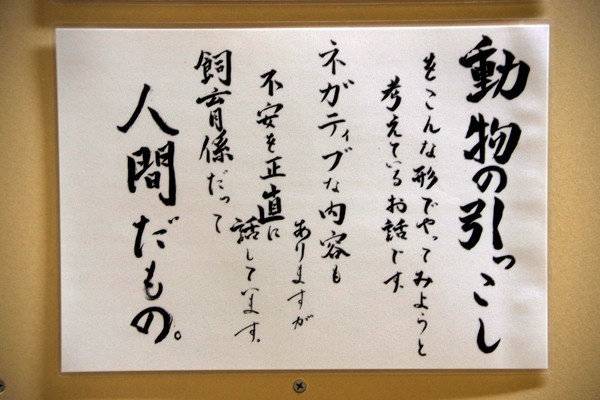 動物の引っこし
をこんな形でやってみようと
考えているお話です。
ネガティブな内容も
ありますが
不安を正直に
話しています。
飼育係だって
人間だもの。